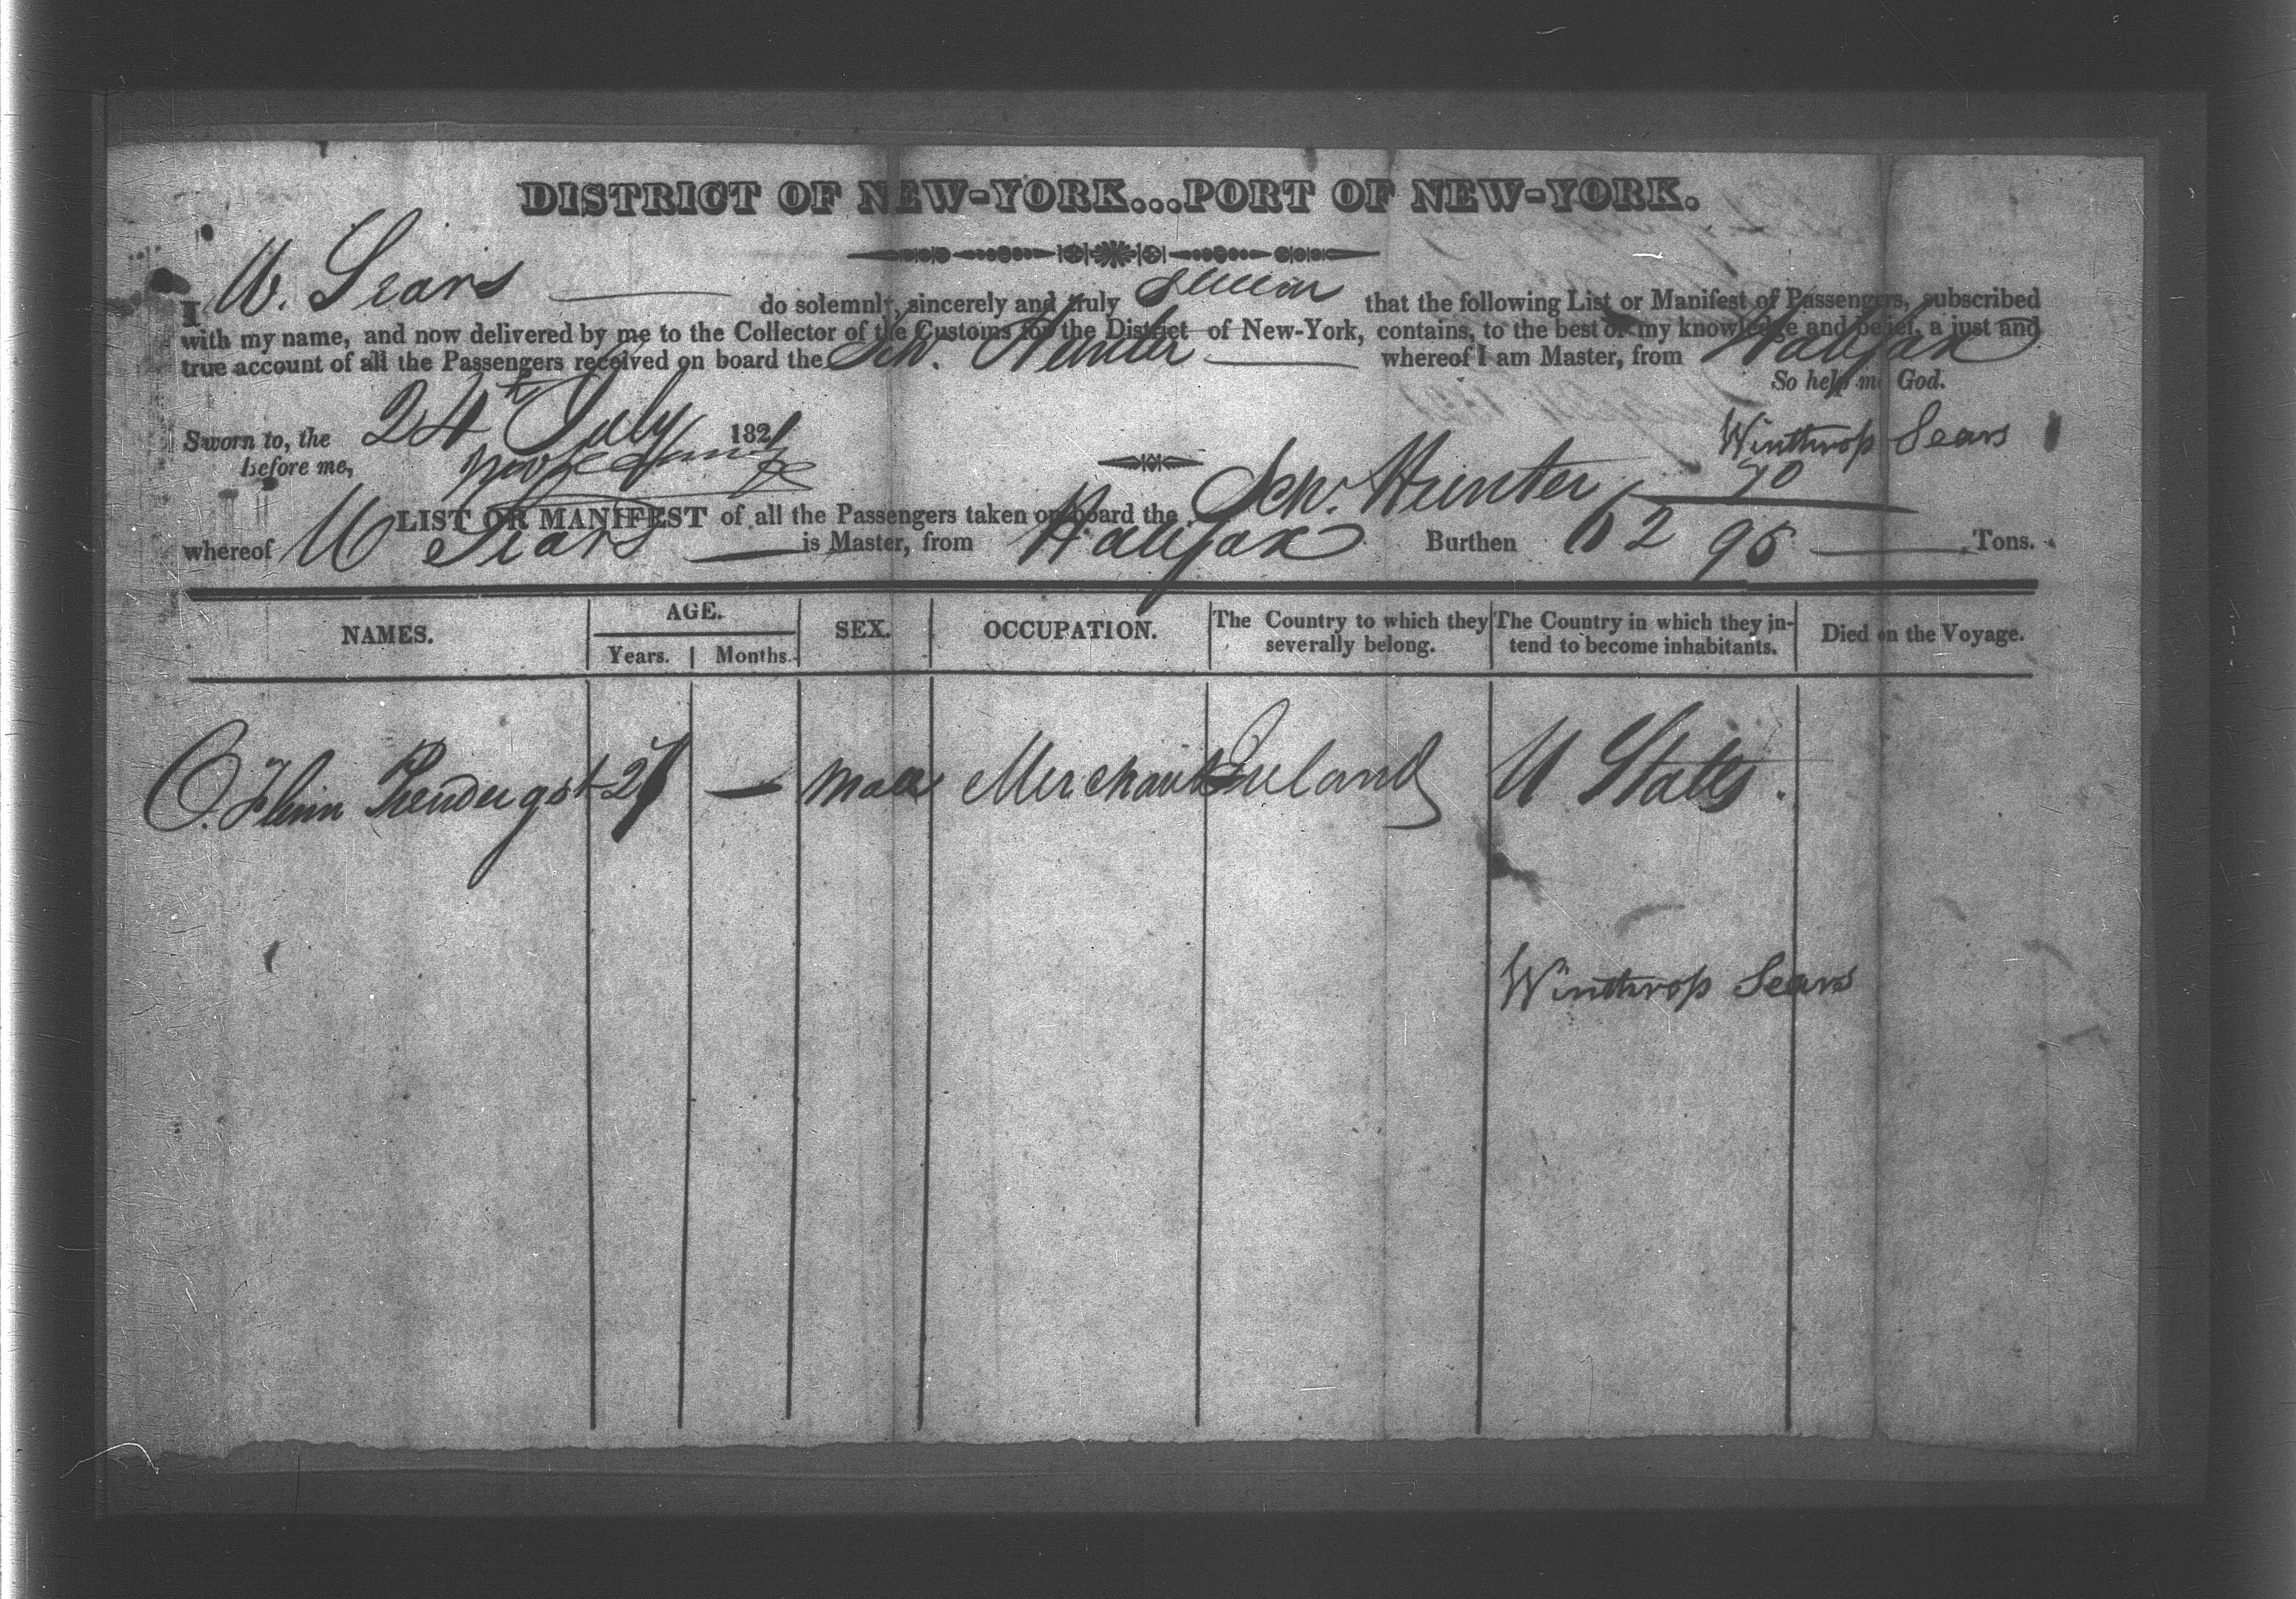 DISTRICT OF NEW-YORK...PORT OF NEW-YORK.
I W. Sears do solemnly, sincerely and truly Swear that the following List or Manifest of Passengers, subscribed
with my name, and now delivered by me to the Collector of the Customs for the District of New-York, contains, to the best of my knowledge and belief, a just and
true account of all the Passengers received on board the Sch. Hunter whereof I am Master, from Halifax
So help me God.
Sworn to, the 24th July 1821
before me,
Winthrop Sears
LIST OR MANIFEST of all the Passengers taken on board the Sch. Hunter
whereof W Sears is Master, from Halifax Burthen Tons.
NAMES. AGE. Years. Months. SEX. OCCUPATION. The Country to which they severally belong. The Country in which they intend to become inhabitants. Died on the Voyage.
O. Prendergst 27 — Male Merchant Ireland U States.
Winthrop Sears